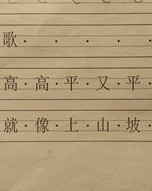 歌 · · · ·
高·高·平·又·平
就·像·上·山·坡